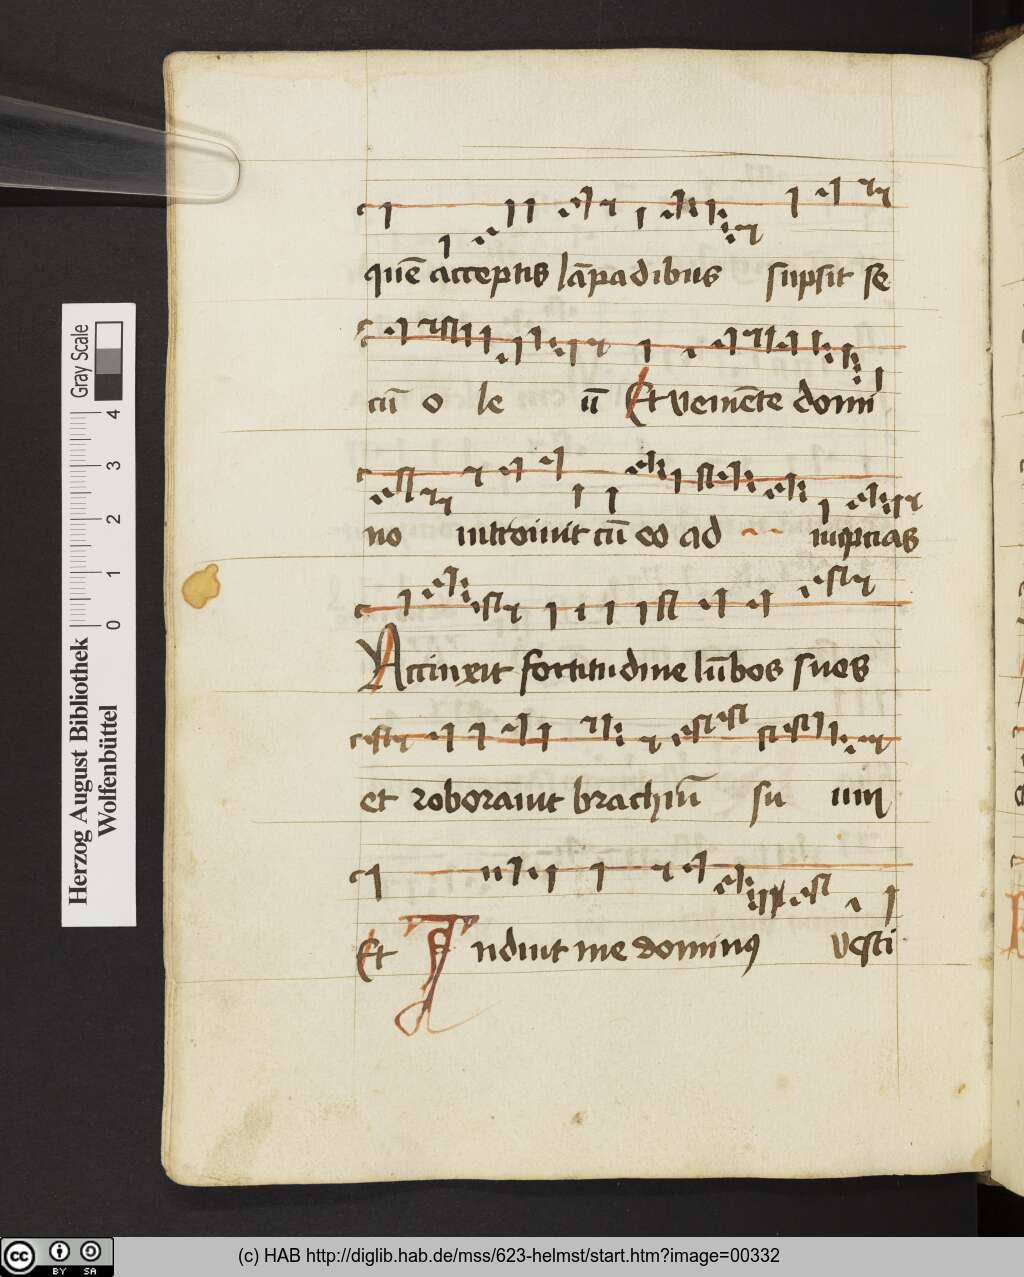 quē acceptis lāpadibus supsit se
cū o le ū Et veniēte domi
no introiuit cū eo ad nuptias
Accinxit fortitudine lūbos suos
et roborauit brachiū su um
Et Induit me dominus vesti
Herzog August Bibliothek
Wolfenbüttel
0 1 2 3 4
Gray Scale
cc BY SA
(c) HAB http://diglib.hab.de/mss/623-helmst/start.htm?image=00332